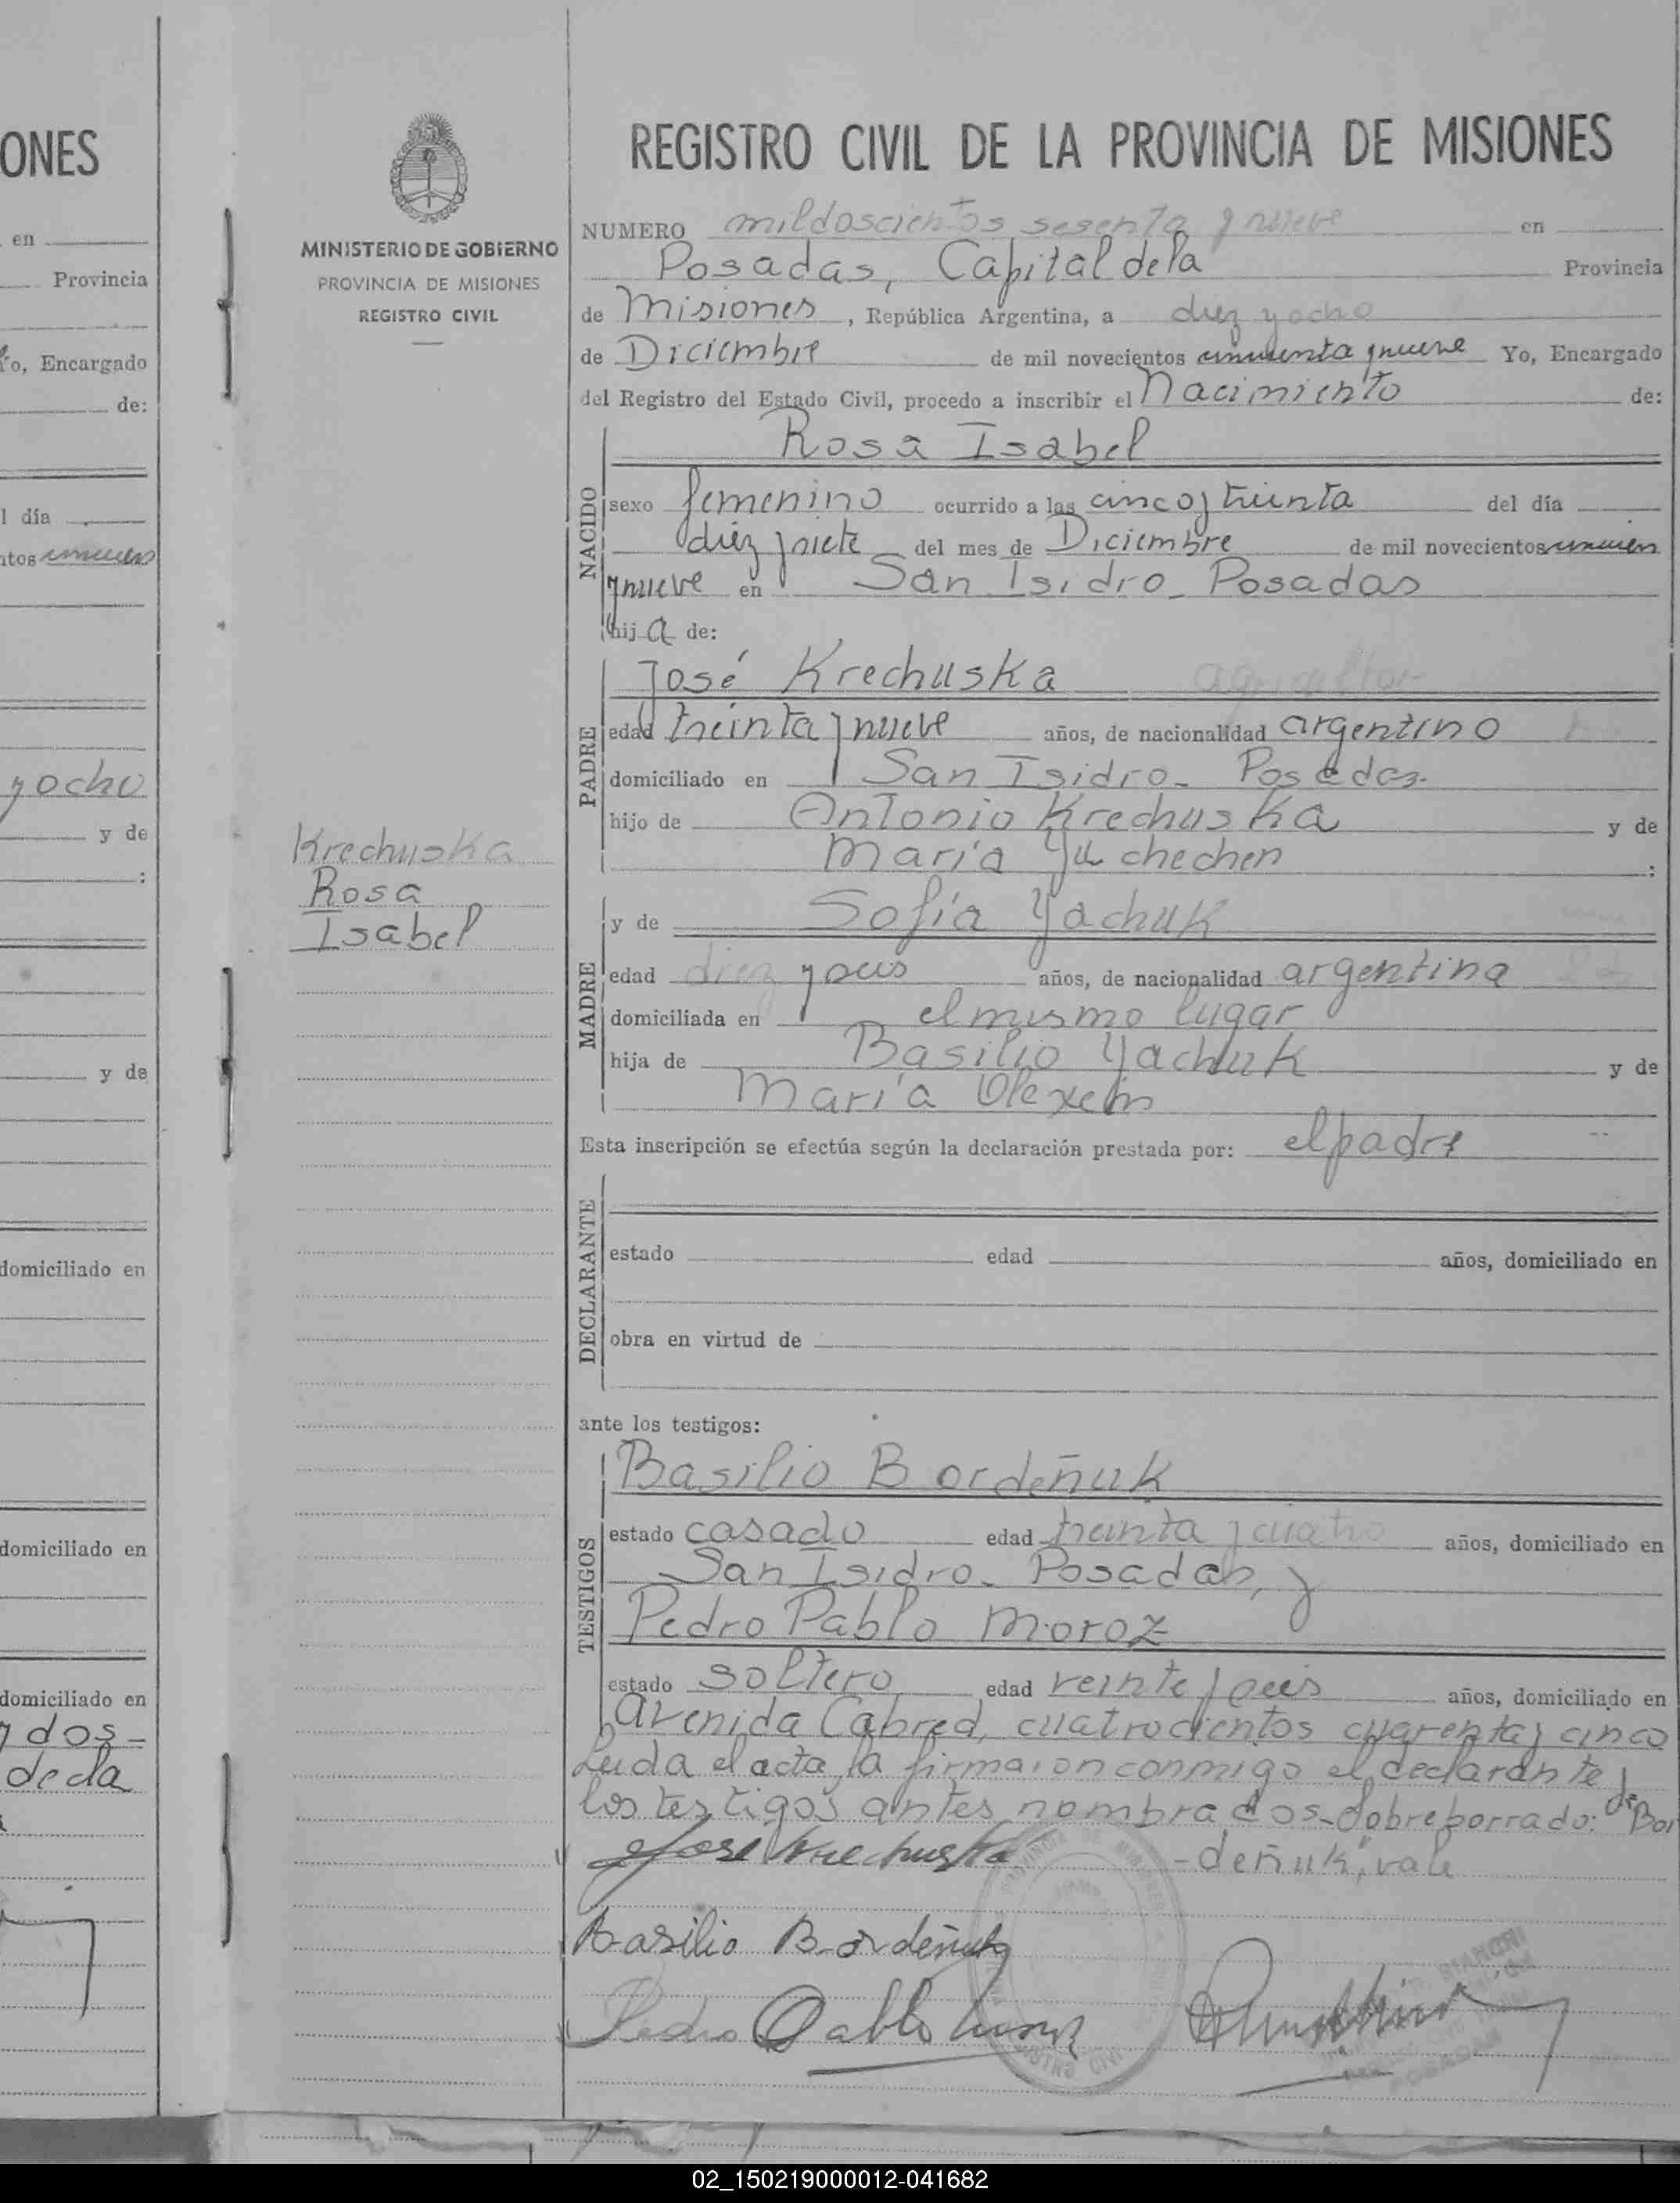 ONES
en
Provincia
Yo, Encargado
de:
l día
ntos
y ocho
y de
:
y de
domiciliado en
domiciliado en
domiciliado en
y dos-
de cla
MINISTERIO DE GOBIERNO
PROVINCIA DE MISIONES
REGISTRO CIVIL
Krechuska
Rosa
Isabel
REGISTRO CIVIL DE LA PROVINCIA DE MISIONES
NUMERO mil doscientos sesenta y nueve en
Posadas, Capital de la Provincia
de Misiones, República Argentina, a diez y ocho
de Diciembre de mil novecientos cincuenta y nueve Yo, Encargado
del Registro del Estado Civil, procedo a inscribir el Nacimiento de:
NACIDO
Rosa Isabel
sexo femenino ocurrido a las cinco y treinta del día
diez y siete del mes de Diciembre de mil novecientos cincuen
y nueve en San Isidro - Posadas
hij a de:
PADRE
José Krechuska agricultor
edad treinta y nueve años, de nacionalidad argentino
domiciliado en San Isidro - Posadas.
hijo de Antonio Krechuska y de
María Yuchechen :
MADRE
y de Sofía Yachuk
edad diez y seis años, de nacionalidad argentina
domiciliada en el mismo lugar
hija de Basilio Yachuk y de
María
Esta inscripción se efectúa según la declaración prestada por: el padre
DECLARANTE
estado edad años, domiciliado en
obra en virtud de
ante los testigos:
TESTIGOS
Basilio Bordeñuk
estado casado edad treinta y cuatro años, domiciliado en
San Isidro - Posadas, y
Pedro Pablo Moroz
estado soltero edad veinte y seis años, domiciliado en
Avenida Cabred, cuatrocientos cuarenta y cinco
Leida el acta, la firmaron conmigo el declarante y
los testigos antes nombrados - Sobre borrado: "de Bor
-deñuk", vale
José Krechuska
Basilio Bordeñuk
Pedro Pablo Moroz
BIANCHI
POSADAS
02_150219000012-041682